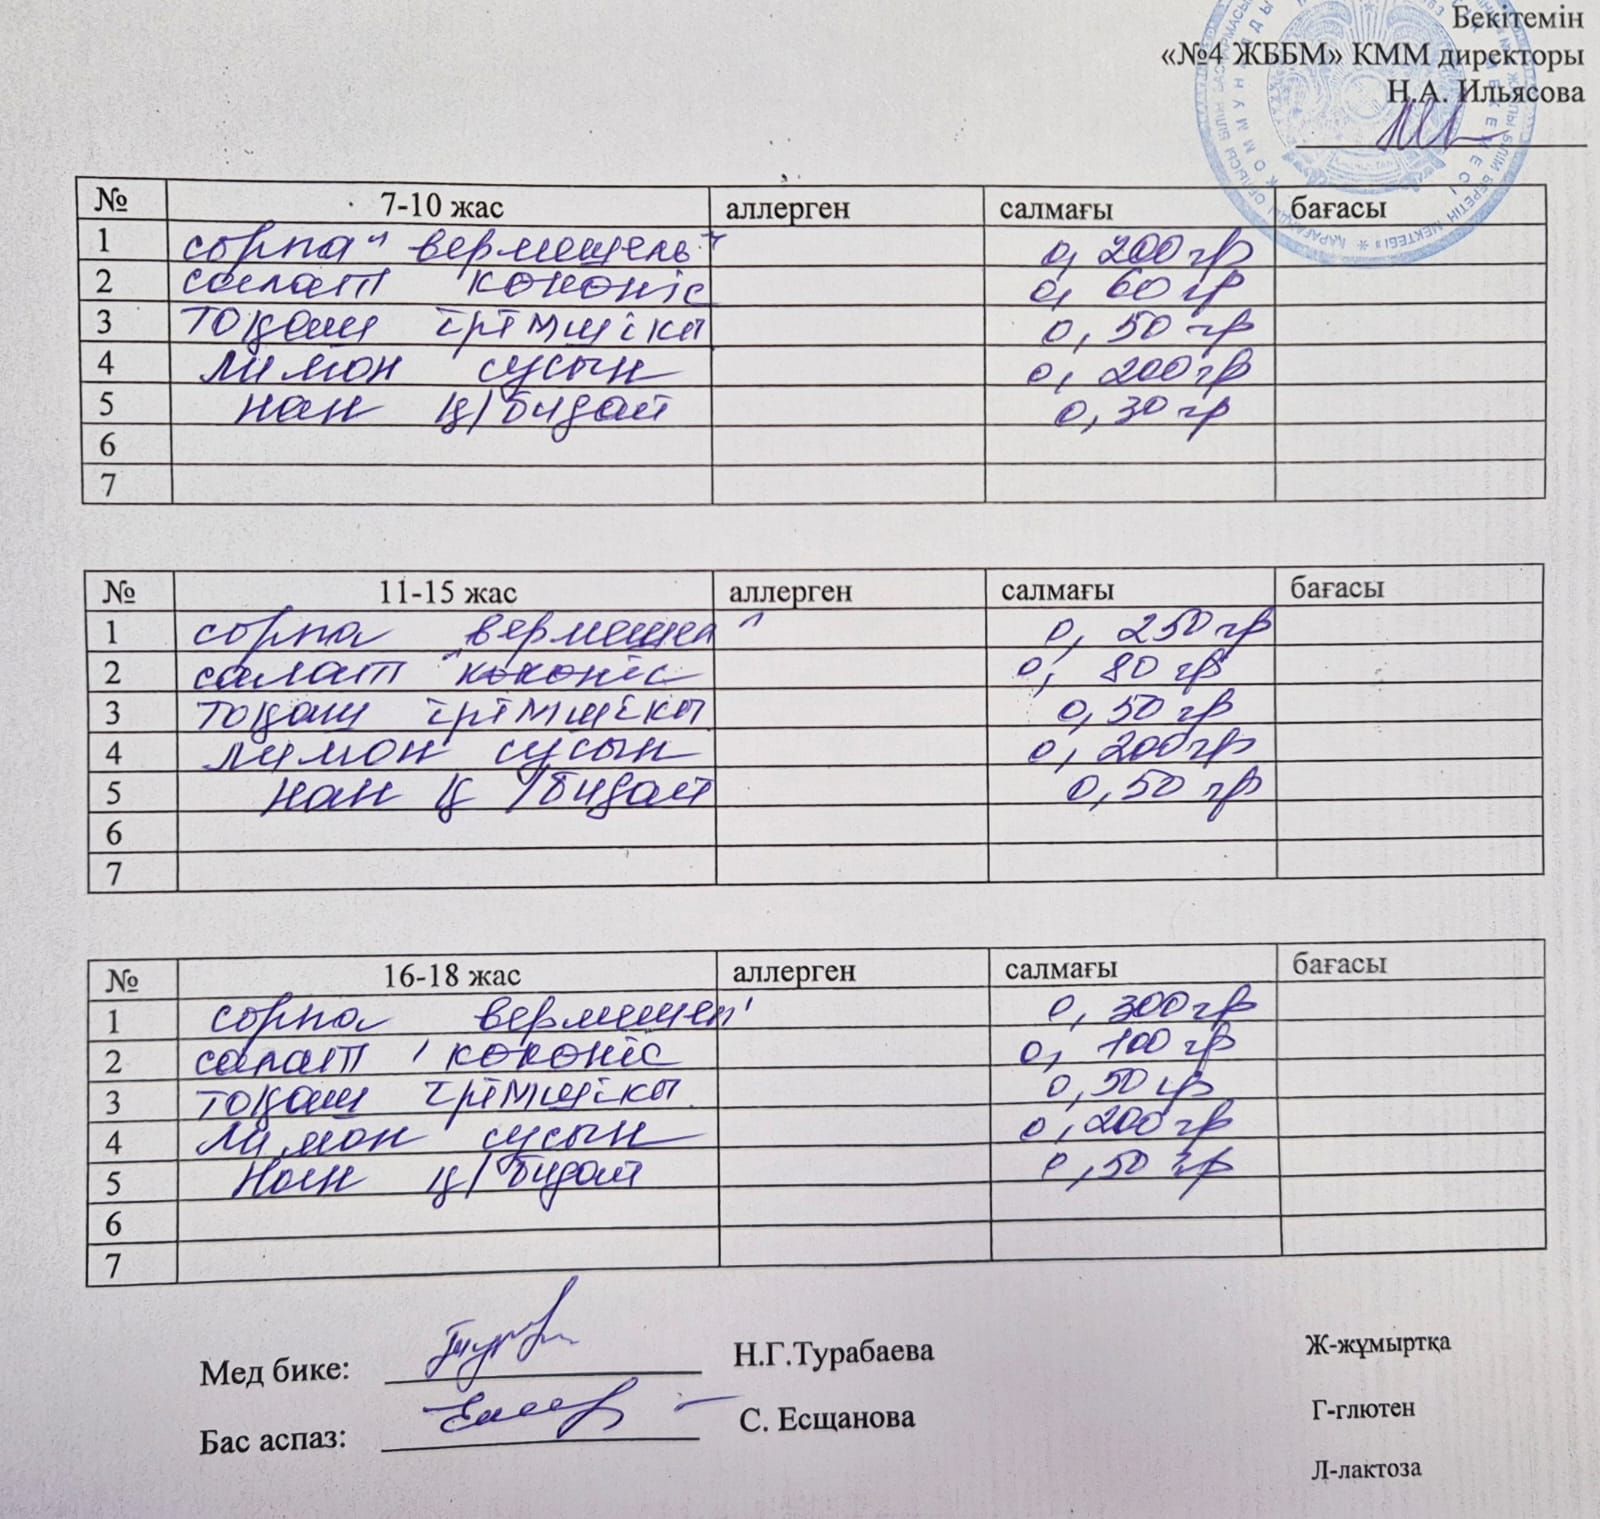 Бекітемін
«№4 ЖББМ» КММ директоры
Н.А. Ильясова
№ 7-10 жас аллерген салмағы бағасы
1 сорпа "вермещель" 0, 200 гр
2 салат көкөніс 0, 60 гр
3 тоқаш ірімшікті 0, 50 гр
4 лимон сусын 0, 200 гр
5 нан ц/бидай 0, 30 гр
6
7
№ 11-15 жас аллерген салмағы бағасы
1 сорпа вермещел" 0, 250 гр
2 салат "көкөніс 0, 80 гр
3 тоқаш ірімшікті 0, 50 гр
4 лимон сусын 0, 200 гр
5 нан ц/бидай 0, 50 гр
6
7
№ 16-18 жас аллерген салмағы бағасы
1 сорпа вермещел' 0, 300 гр
2 салат ' көкөніс 0, 100 гр
3 тоқаш ірімшікті 0, 50 гр
4 лимон сусын 0, 200 гр
5 нан ц/бидай 0, 50 гр
6
7
Мед бике: Н.Г.Турабаева
Бас аспаз: С. Есщанова
Ж-жұмыртқа
Г-глютен
Л-лактоза